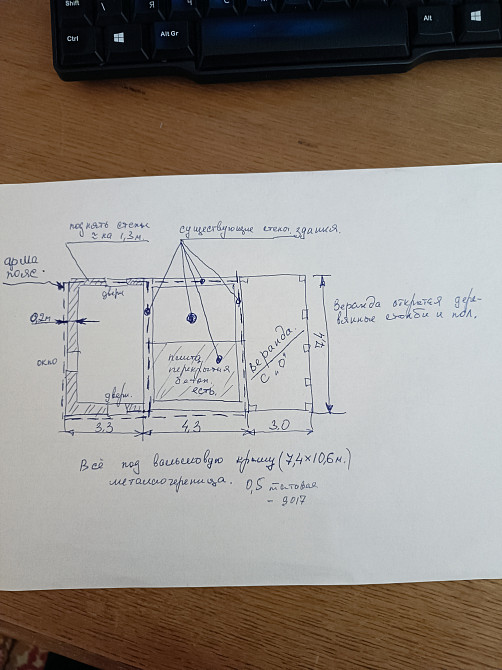 Shift
Я
Ч
С
Ctrl
Alt
Alt Gr
Alt
поднять стены
≈ на 1,3 м.
существующие стены здания.
арма
пояс.
двери
0,2м
окно
плита
перекрытия
бетон.
есть.
двери.
веранда.
с "0"
7,4
Веранда открытая дере-
вянные столбы и пол.
3,3
4,3
3,0
Всё под вальмовую крышу (7,4×10,6 м.)
металлочерепица. 0,5 матовая
- 9017